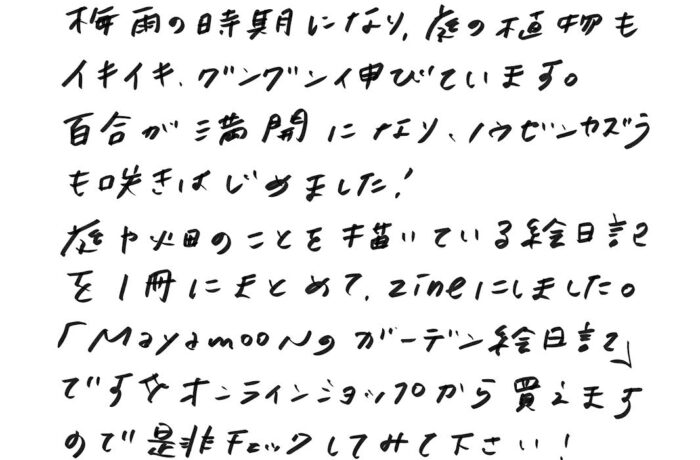 梅雨の時期になり、庭の植物も
イキイキ、グングン伸びています。
百合が満開になり、ノウゼンカズラ
も咲きはじめました！
庭や畑のことを描いている絵日記
を1冊にまとめて、zineにしました。
「Mayamoonのガーデン絵日記」
です オンラインショップから買えます
ので是非チェックしてみて下さい！